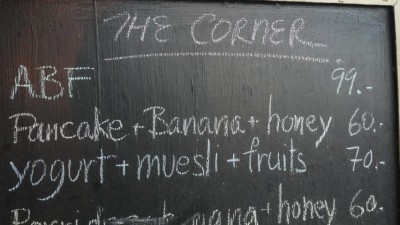 THE CORNER
ABF 99.-
Pancake + Banana + honey 60.-
yogurt + muesli + fruits 70.-
+ honey 60.